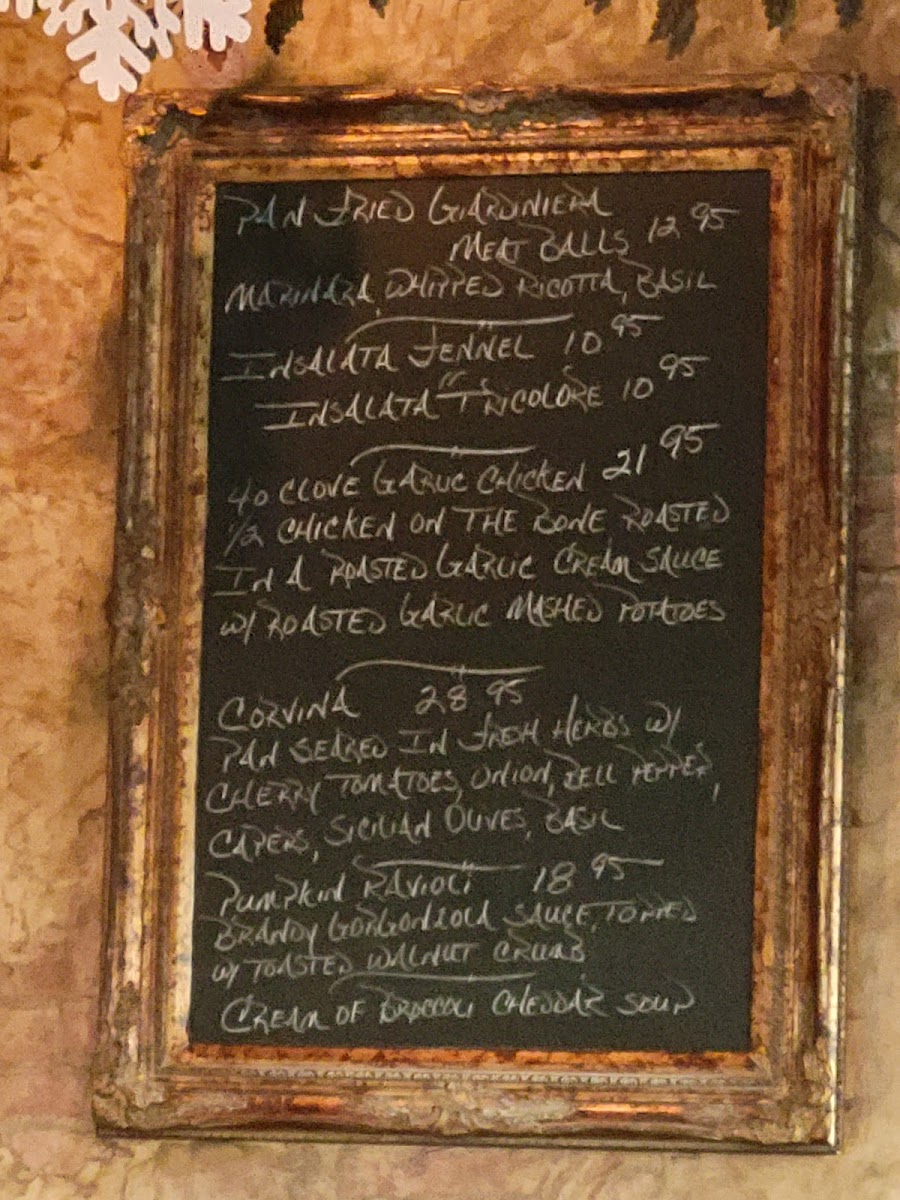 PAN FRIED GIARDINIERA
MEAT BALLS 12 95
MARINARA, WHIPPED RICOTTA, BASIL
INSALATA FENNEL 10 95
INSALATA TRICOLORE 10 95
40 CLOVE GARLIC CHICKEN 21 95
1/2 CHICKEN ON THE BONE ROASTED
IN A ROASTED GARLIC CREAM SAUCE
W/ ROASTED GARLIC MASHED POTATOES
CORVINA 28 95
PAN SEARED IN FRESH HERBS W/
CHERRY TOMATOES, ONION, BELL PEPPER,
CAPERS, SICILIAN OLIVES, BASIL
PUMPKIN RAVIOLI 18 95
BRANDY GORGONZOLA SAUCE, TOPPED
W/ TOASTED WALNUT CRUMB
CREAM OF BROCCOLI CHEDDAR SOUP